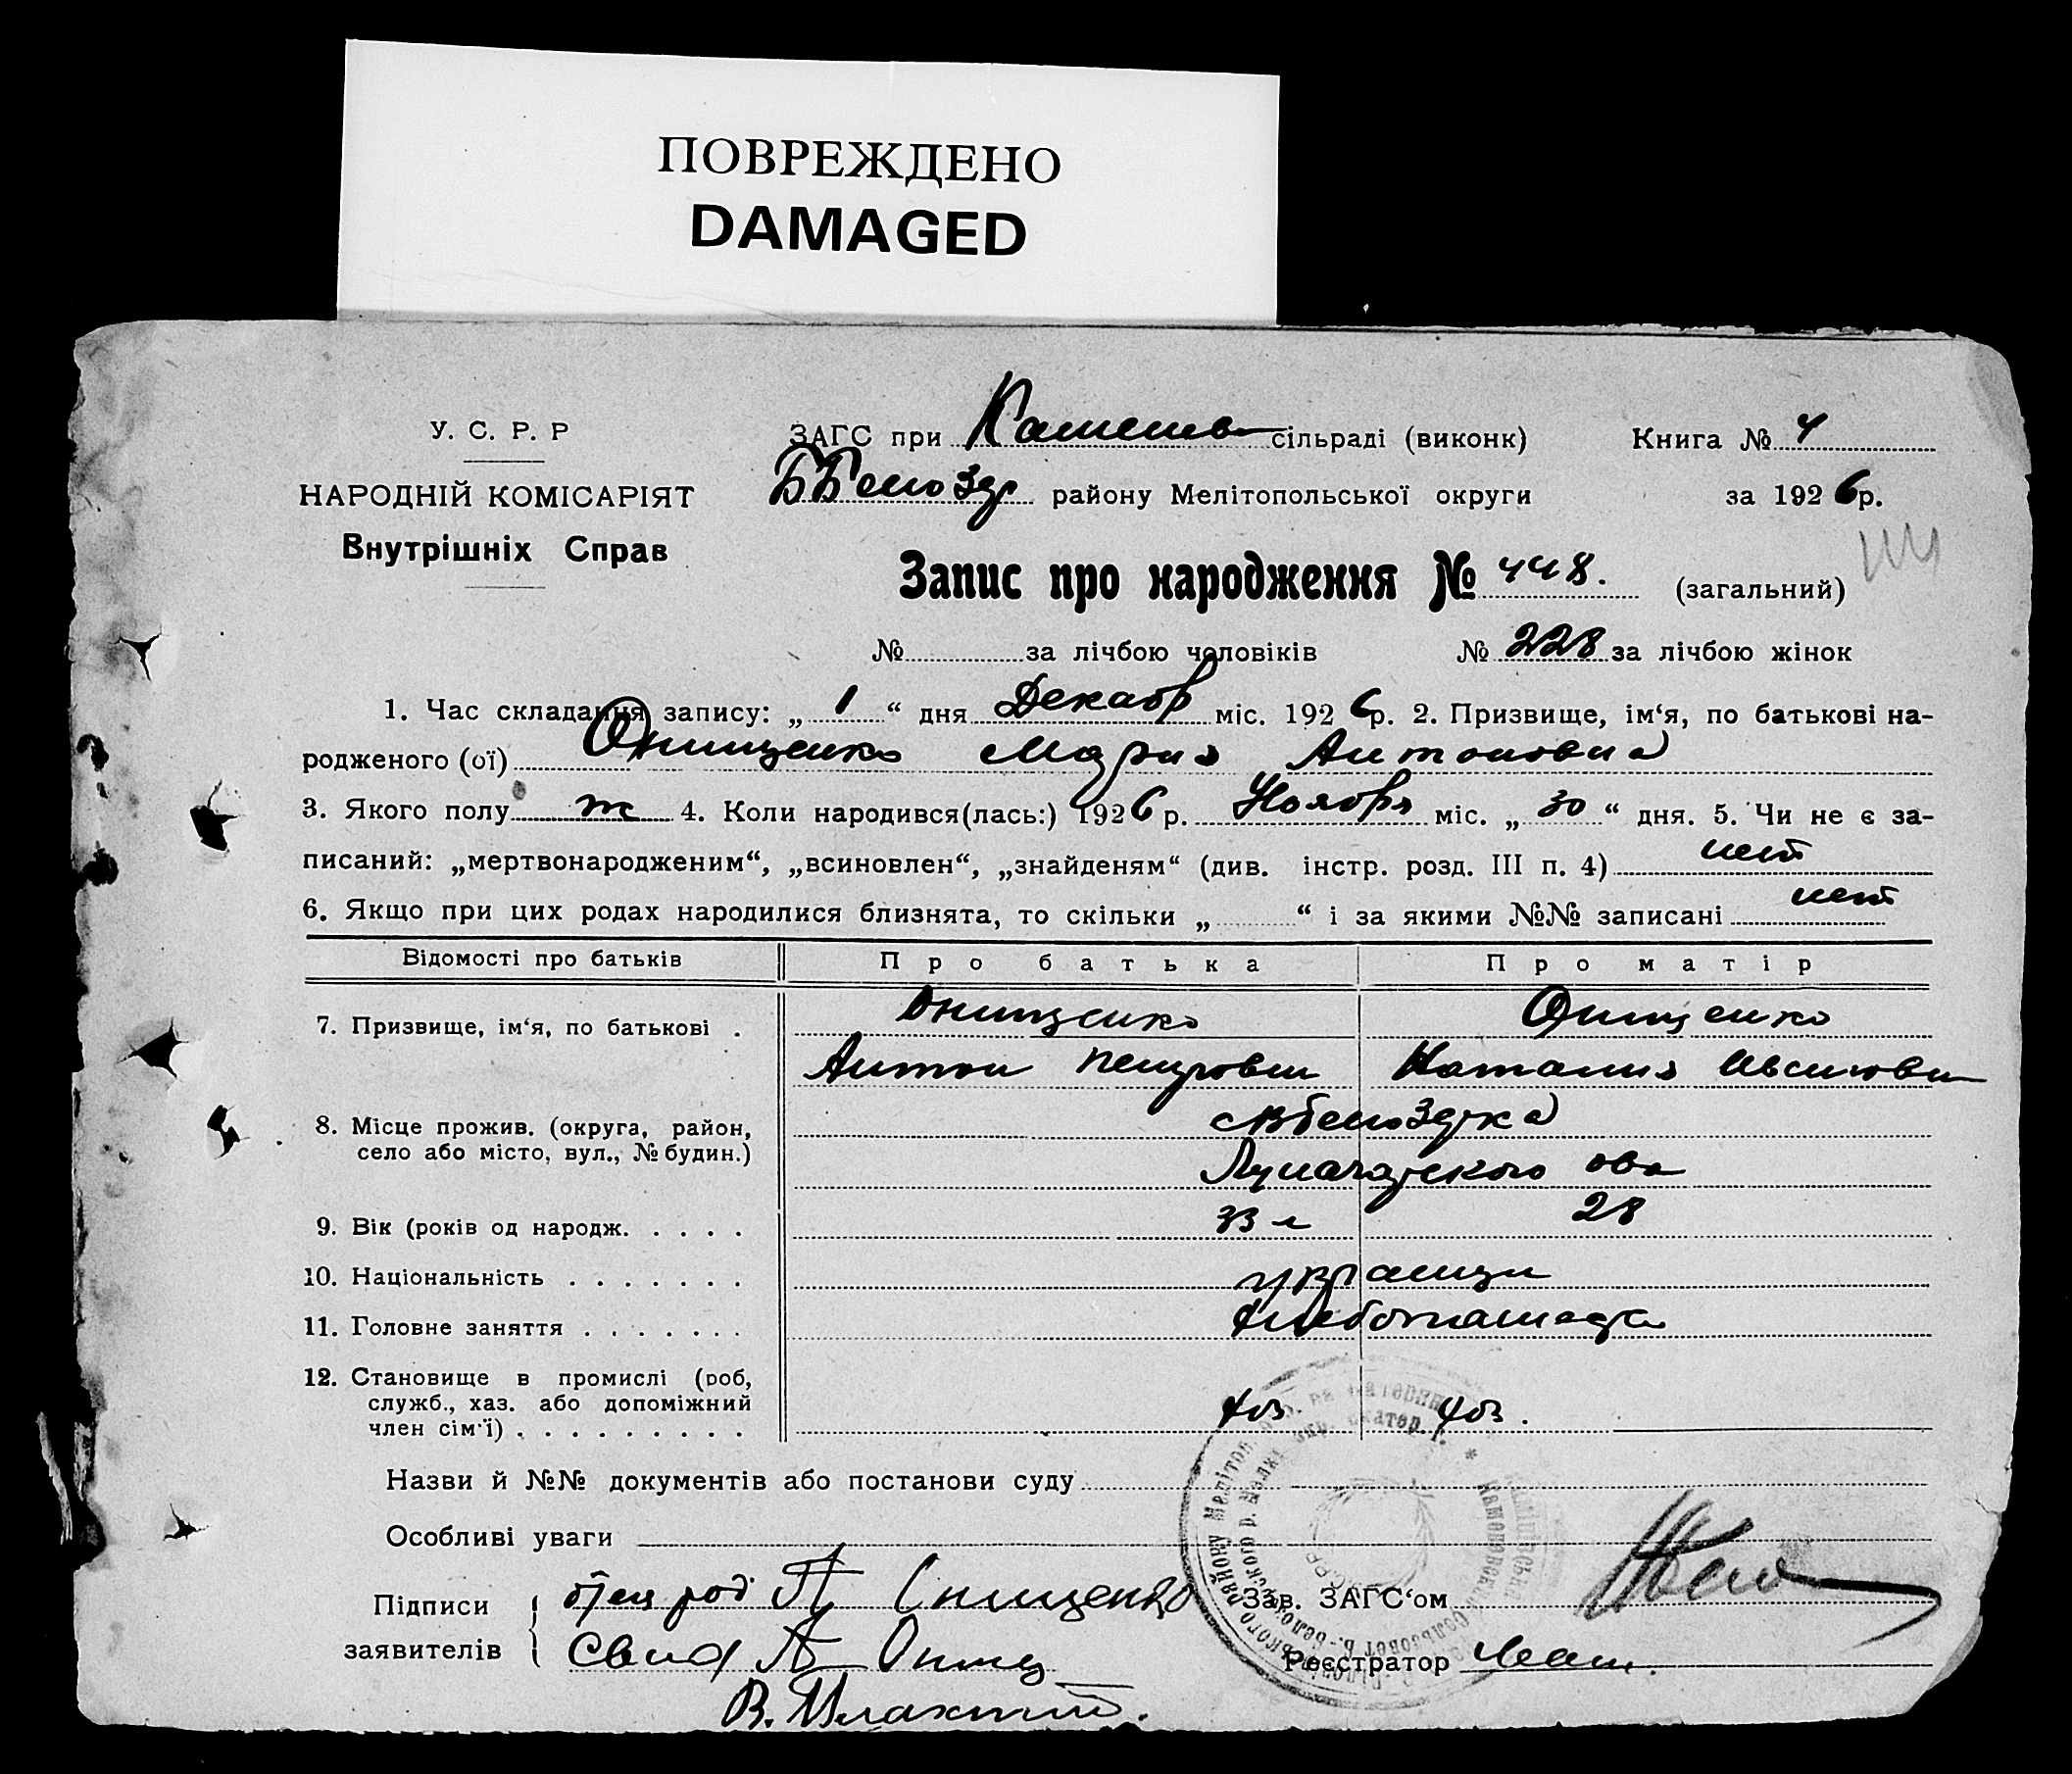 ПОВРЕЖДЕНО
DAMAGED
У. С. Р. Р
НАРОДНІЙ КОМІСАРІЯТ
Внутрішніх Справ
ЗАГС при сільраді (виконк)
ББелозер району Мелітопольської округи
Книга № 4
за 1926р.
Запис про народження № 448. (загальний)
№ за лічбою чоловіків № 228 за лічбою жінок
1. Час складання запису: „ 1 “ дня Декабр міс. 1926р. 2. Призвище, ім‘я, по батькові на-
родженого (ої) Онищенко Мария Антоновна
3. Якого полу ж 4. Коли народився(лась:) 1926 р. Ноября міс. „ 30 “ дня. 5. Чи не є за-
писаний: „мертвонародженим“, „всиновлен“, „знайденям“ (див. інстр. розд. III п. 4) нет
6. Якщо при цих родах народилися близнята, то скільки „ “ і за якими №№ записані нет
Відомості про батьків Про батька Про матір
7. Призвище, ім‘я, по батькові . Онищенко Онищенко
Антон Петрович Наталия
8. Місце прожив. (округа, район,
село або місто, вул., № будин.)
9. Вік (років од народж. . . . . 33 л 28
10. Національність . . . . . . . украинцы
11. Головне заняття . . . . . . .
12. Становище в промислі (роб,
служб., хаз. або допоміжний
член сім‘ї) . . . . . . . . . хоз хоз.
Назви й №№ документів або постанови суду
Особливі уваги
Підписи
заявителів
отец род А Онищенко
Свид А Онищ
В.
Зав. ЗАГС‘ом
Реєстратор